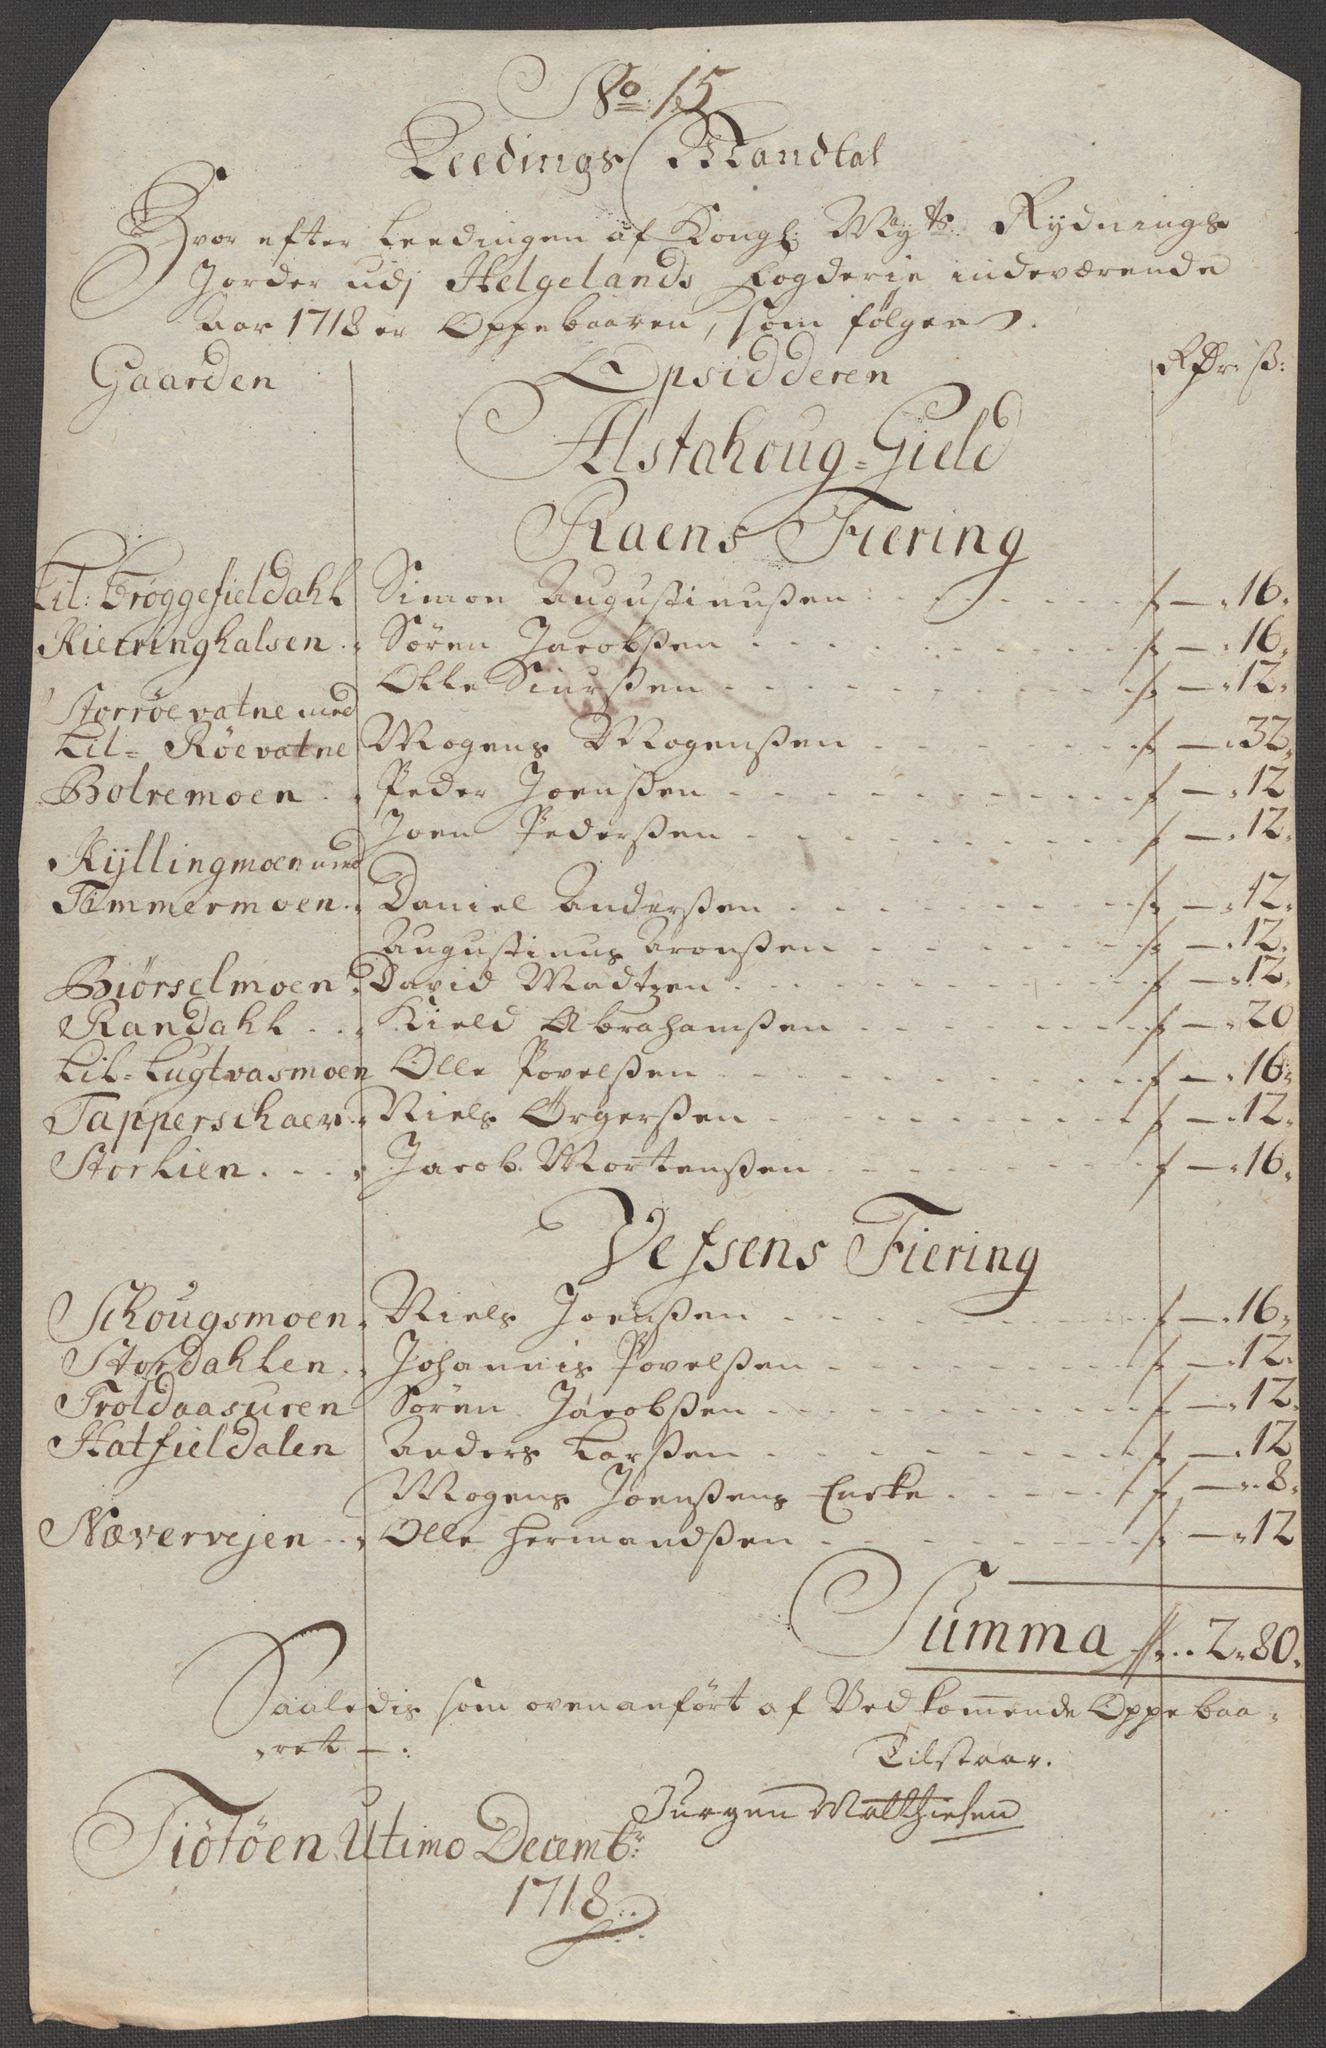 No 15
Leedings Mandtal
Hvor efter Leedingen af Kongl: Mayts: Rydnings
Jorder udj Helgelands Fogderie indeværende
Aar 1718 er Oppebaaren, som følger.
Gaarden Opsidderen Rdr. ß:
Alstahoug=Gield
Raens Fiering
Lil: Brøggefieldahl Simon Augustinußen — 16.
Kierringhalsen Søren Jacobßen — 16.
Olle Siurßen — 12.
Storrøevatne med
Lil= Røevatne Mogens Mogenßen — 32.
Bolremoen Peder Joenßen — 12
Joen Pederßen — 12.
Kyllingmoen med
Timmermoen Daniel Anderßen — 12.
Augustinus Aronßen — 12.
Biørselmoen David Madtzen — 12.
Randahl Kield Abrahamßen — 20
Lil=Lugtvasmoen Olle Povelßen — 16.
Tapperschaer Niels Ørgerßen — 12.
Storlien Jacob Mortenßen — 16.
Vefsens Fiering
Schougsmoen Niels Joenßen — 16.
Stordahlen Johannis Povelßen — 12.
Troldaasuren Søren Jacobßen — 12.
Hatfieldalen Anders Larßen — 12
Mogens Joenßens Encke — 8.
Nævervejen Olle Hermandßen — 12
Summa 2. 80.
Saaledis som ovenanført af Vedkommende Oppebaa=
ret —. Tilstaar.
Jurgen Matthiesen
Tiøtøen Utimo Decembr:
1718